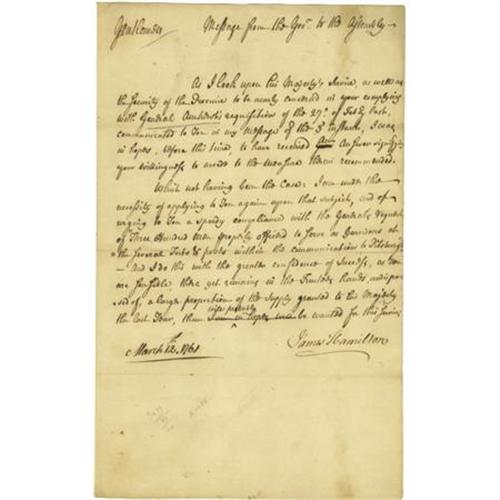 Gentlemen Message from the Govr. to the Assembly
As I look upon his Majesty's Service, as well as
the Security of the Province to be nearly concerned in your complying
with General Amherst's requisition of the 27th. of Feby. last,
communicated to You in my Message of the 3d Instant, I was
in hopes, before this time, to have received an Answer signifying
your willingness to accede to the Measure therein recommended.
Which not having been the Case; I am under the
necessity of applying to You again upon that subject, and of
urging to You a speedy compliance with the General's request
of Three Hundred Men properly officered to serve as Garrisons at
the several Forts & posts within the communication to Pitsburgh
- And I do this with the greater confidence of Success, as You
are sensible, there yet remains in the Trustees hands, undispo
sed of, a large proportion of the Supply granted to his Majesty
the last Year, than will probably be wanted for this Service
March 12th. 1761 James Hamilton